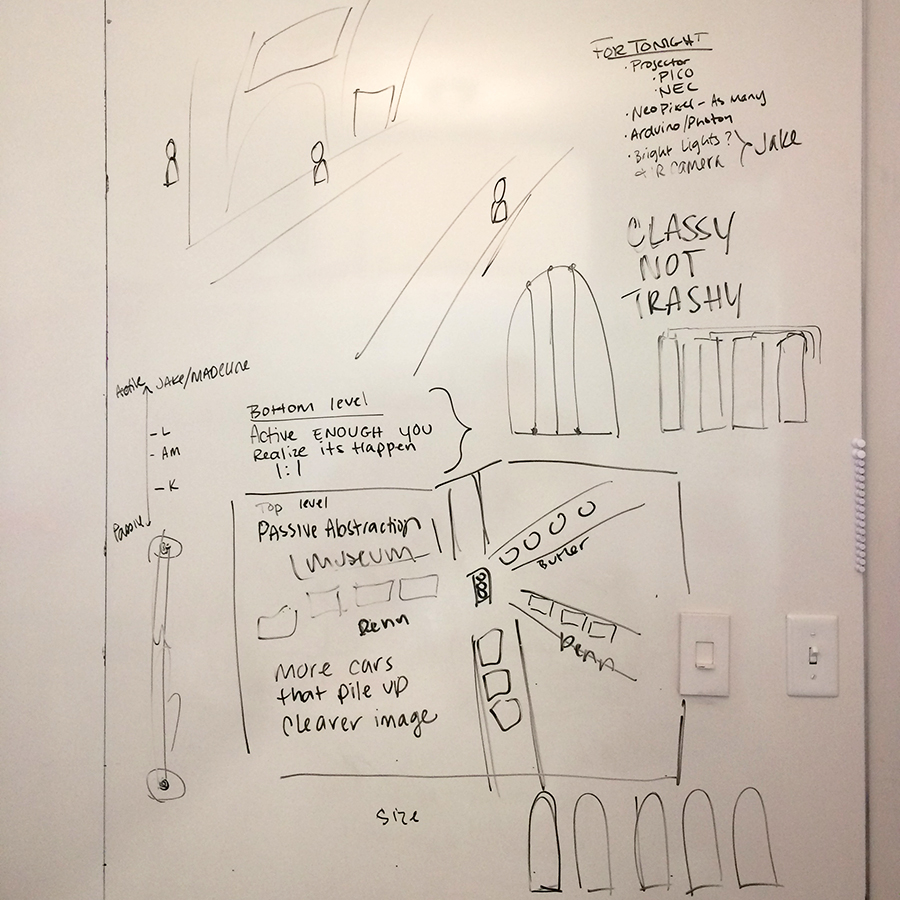 FOR TONIGHT
• Projector
• PICO
• NEC
• NeoPixel - As Many
• Arduino/Photon
• Bright Lights?
IR Camera
Jake
CLASSY
NOT
TRASHY
Active
JAKE/MADELINE
- L
- AM
- K
Passive
Bottom level
Active ENOUGH YOU
Realize its Happen
1:1
Top level
PASSIVE Abstraction
Museum
Butler
Penn
Penn
More cars
that pile up
Clearer image
Size